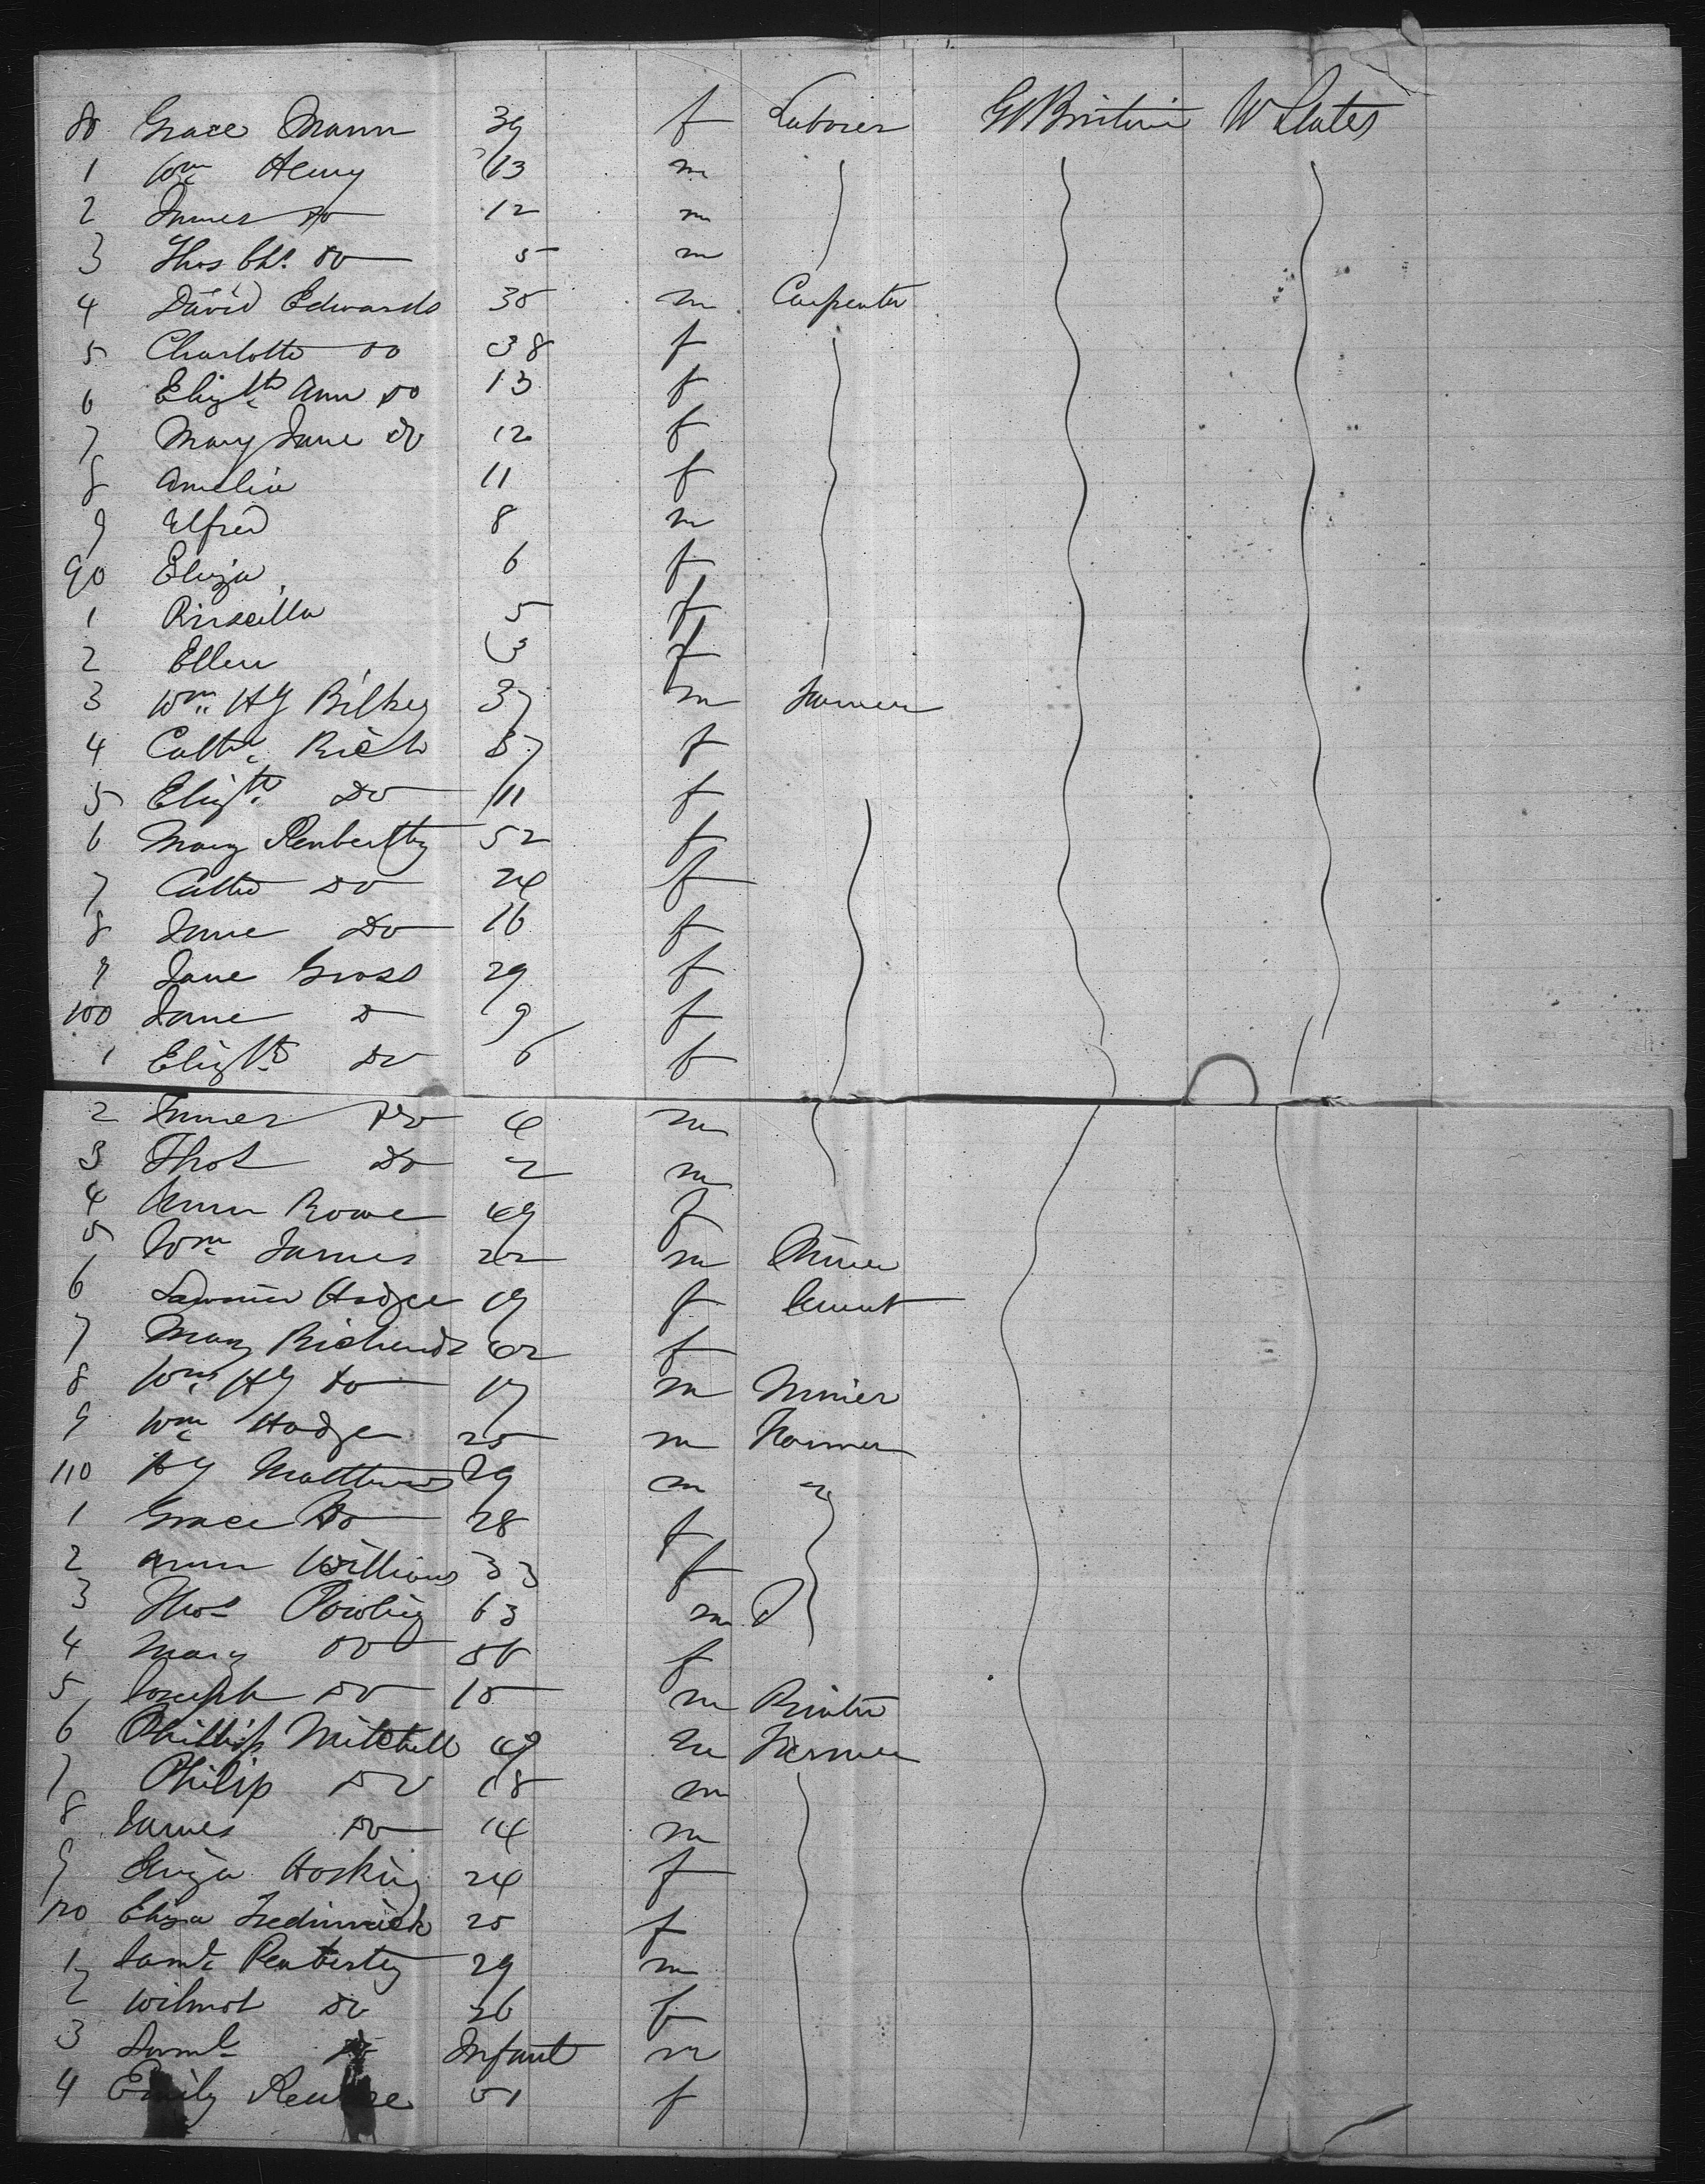 80 Grace Mann 39 f Laborer Gt Britain U States
1 Wm Henry 13 m
2 James Do 12 m
3 Thos Chs. Do 5 m
4 David Edwards 38 m Carpenter
5 Charlotte Do 38 f
6 Elizth Ann Do 13 f
7 Mary Jane Do 12 f
8 Amelia 11 f
9 Alfred 8 m
90 Eliza 6 f
1 Priscilla 5 f
2 Ellen 3 f
3 Wm Hy Bilkey 37 m Farmer
4 Cathe Rich 37 f
5 Elizth Do 11 f
6 Mary Penberthy 52 f
7 Cathe Do 24 f
8 Jane Do 16 f
9 Jane Gross 29 f
100 Jane D 9 f
1 Elizth Do 6 f
2 James Do 4 m
3 Thos Do 2 m
4 Ann Rowe 49 f
5 Wm James 22 m Miner
6 Hodge 19 f Servant
7 Mary Richards 42 f
8 Wm Hy Do 19 m Miner
9 Wm Hodge 25 m Farmer
110 Hy Matthews 29 m
1 Grace Do 28 f
2 Ann Williams 33 f
3 Thos 63 m
4 Mary Do f
5 Joseph Do 15 m
6 Phillip Mitchell 49 m Farmer
7 Philip Do 18 m
8 James Do 14 m
9 Eliza Hosking 24 f
120 Eliza Tredinnick 25 f
1 Saml Penberthy 29 m
2 Wilmot Do 26 f
3 Saml Do Infant m
4 Emily 51 f